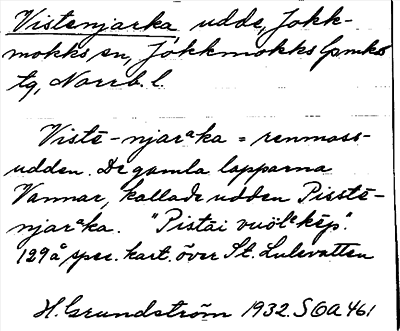 Vistenjarka udde, Jokk-
mokks sn, Jokkmokks lpmks
tg, Norrb. l.
Vistē-njarᵃka = renmoss-
udden. De gamla lapparna
Vannar, kallade udden Pisstē-
njarᵃka. "Pistai vuölᵉkēp".
129 å spec. kart. över St. Lulevatten
H. Grundström 1932. SOA 461